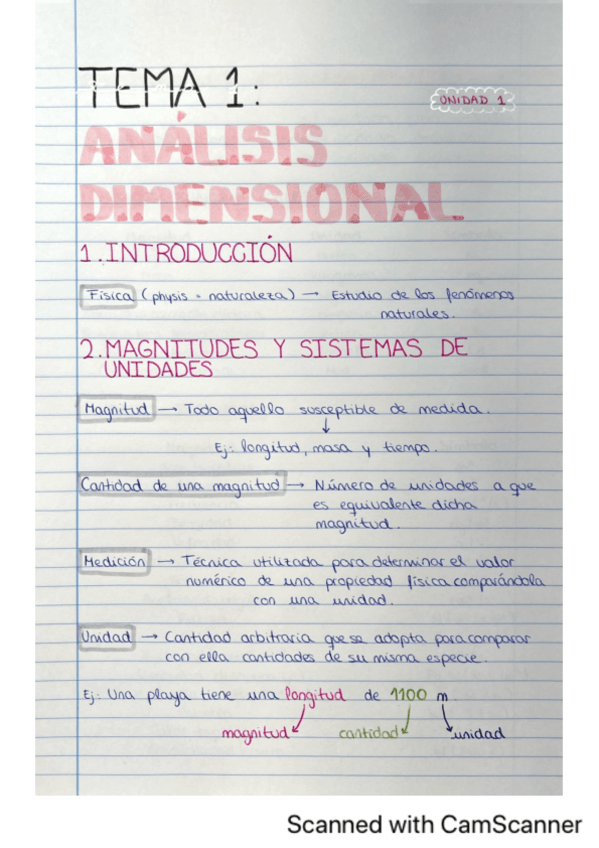 TEMA 1:
UNIDAD 1
ANÁLISIS
DIMENSIONAL
1.INTRODUCCIÓN
Física (physis = naturaleza) → Estudio de los fenómenos
naturales.
2.MAGNITUDES Y SISTEMAS DE
UNIDADES
Magnitud → Todo aquello susceptible de medida.
↓
Ej: longitud, masa y tiempo.
Cantidad de una magnitud → Número de unidades a que
es equivalente dicha
magnitud.
Medición → Técnica utilizada para determinar el valor
numérico de una propiedad física comparándola
con una unidad.
Unidad → Cantidad arbitraria que se adopta para comparar
con ella cantidades de su misma especie.
Ej: Una playa tiene una longitud de 1100 m
magnitud cantidad unidad
Scanned with CamScanner